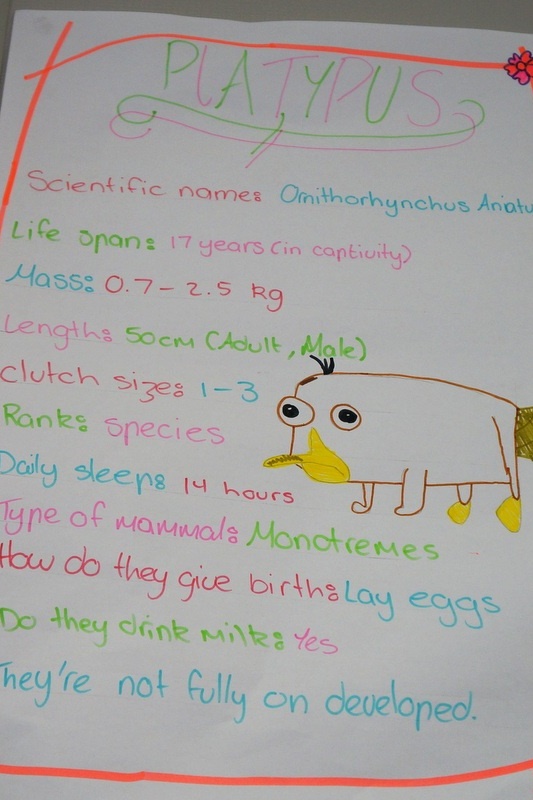 PLATYPUS
Scientific name: Ornithorhynchus Aniatu
Life span: 17 years (in captivity)
Mass: 0.7 - 2.5 kg
Length: 50cm (Adult, Male)
clutch size: 1-3
Rank: species
Daily sleep: 14 hours
Type of mammal: Monotremes
How do they give birth: Lay eggs
Do they drink milk: Yes
They're not fully on developed.